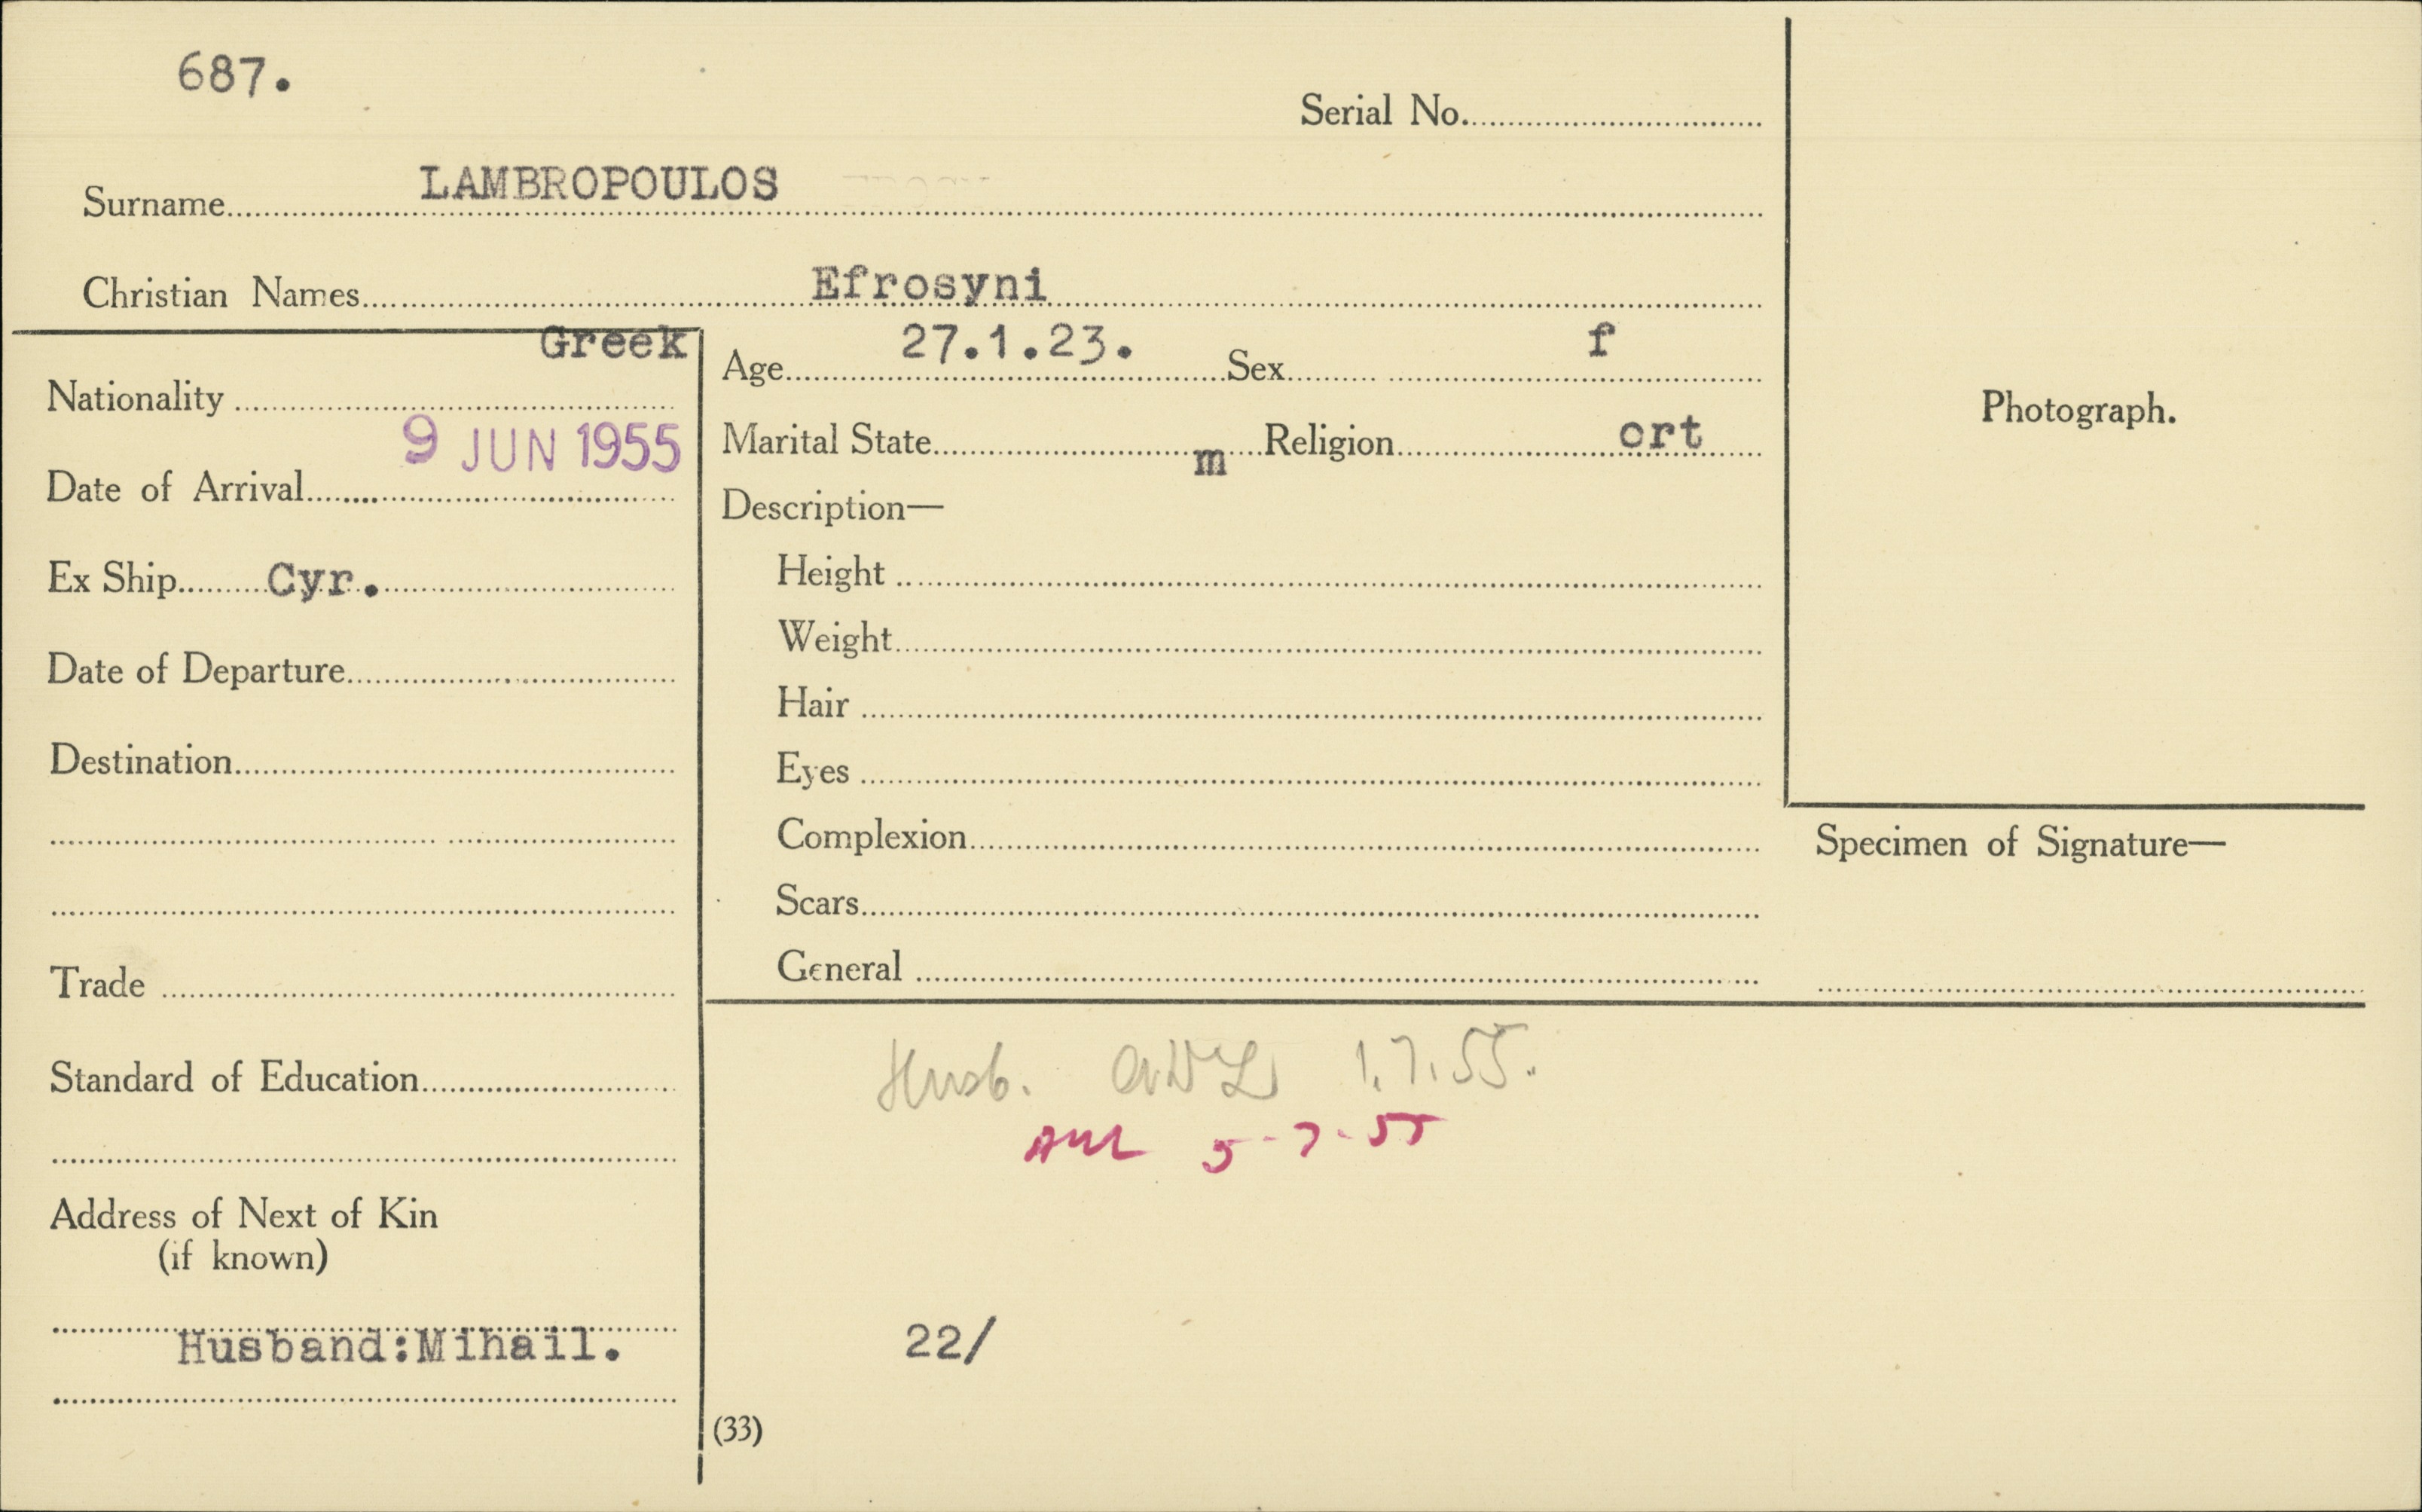 687.
Serial No.
Surname LAMBROPOULOS
Christian Names Efrosyni
Nationality Greek
Date of Arrival 9 JUN 1955
Ex Ship Cyr.
Date of Departure
Destination
Trade
Standard of Education
Address of Next of Kin
(if known)
Husband:Mihail.
Age 27.1.23. Sex f
Marital State m Religion ort
Description—
Height
Weight
Hair
Eyes
Complexion
Scars
General
Photograph.
Specimen of Signature—
Husb. AWL 1.7.55.
AWL 5-7-55
22/
(33)